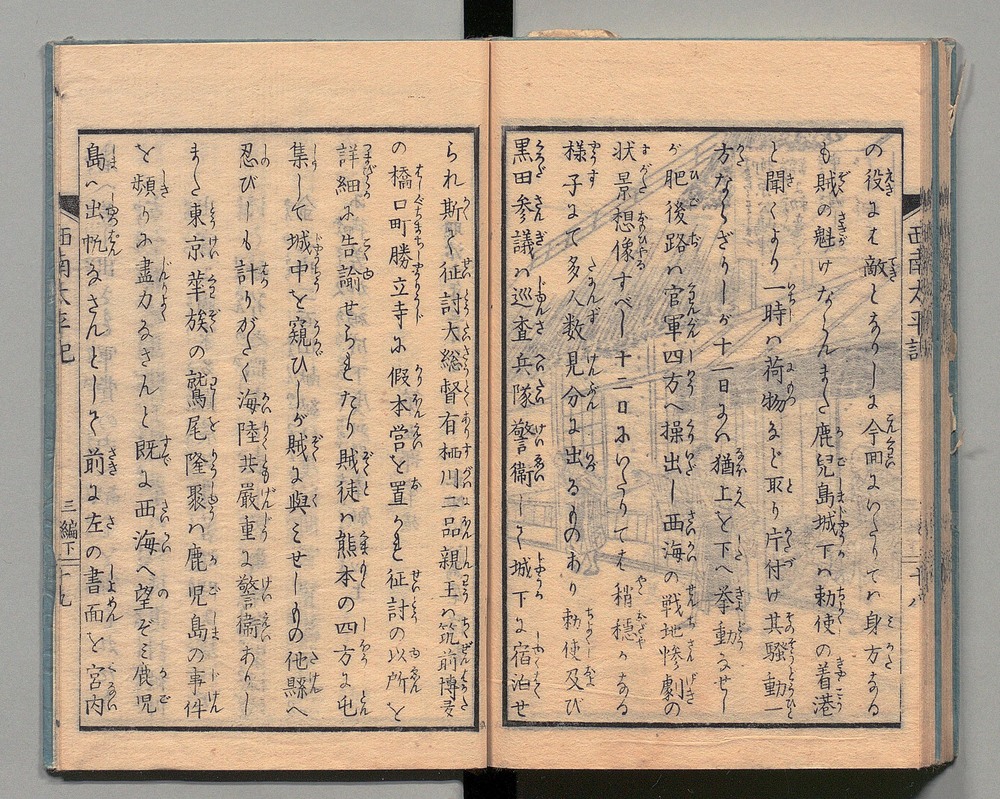 の役には敵となりしは今回にいたりては身方なる
も賊の魁けならんまた鹿児島城下は勅使の着港
と聞くより一時ハ荷物など取り片付け其騒動一
方ならざりしが十一日にハ猶上を下へ挙動なせし
が肥後路ハ官軍四方へ操出し西海の戦地惨劇の
状景想像すべし十二日にいたりては稍穏かなる
様子にて多人数見分に出るものあり勅使及び
黒田参議ハ巡査兵隊警衛して城下に宿泊せ
西南太平記
られ斯く征討大総督有栖川二品親王ハ筑前博多
の橋口町勝立寺に假本営を置かれ征討の以所を
詳細に告諭せられたり賊徒ハ熊本の四方に屯
集して城中を窺ひしが賊に與ミせしもの他縣へ
忍びしも計りがたく海陸共厳重に警衛ありし
また東京華族の鷲尾隆聚ハ鹿児島の事件
を頻りに盡力なさんと既に西海へ望ぞミ鹿児
島へ出帆なさんとして前に左の書面を宮内
西南太平記
三編下
十九